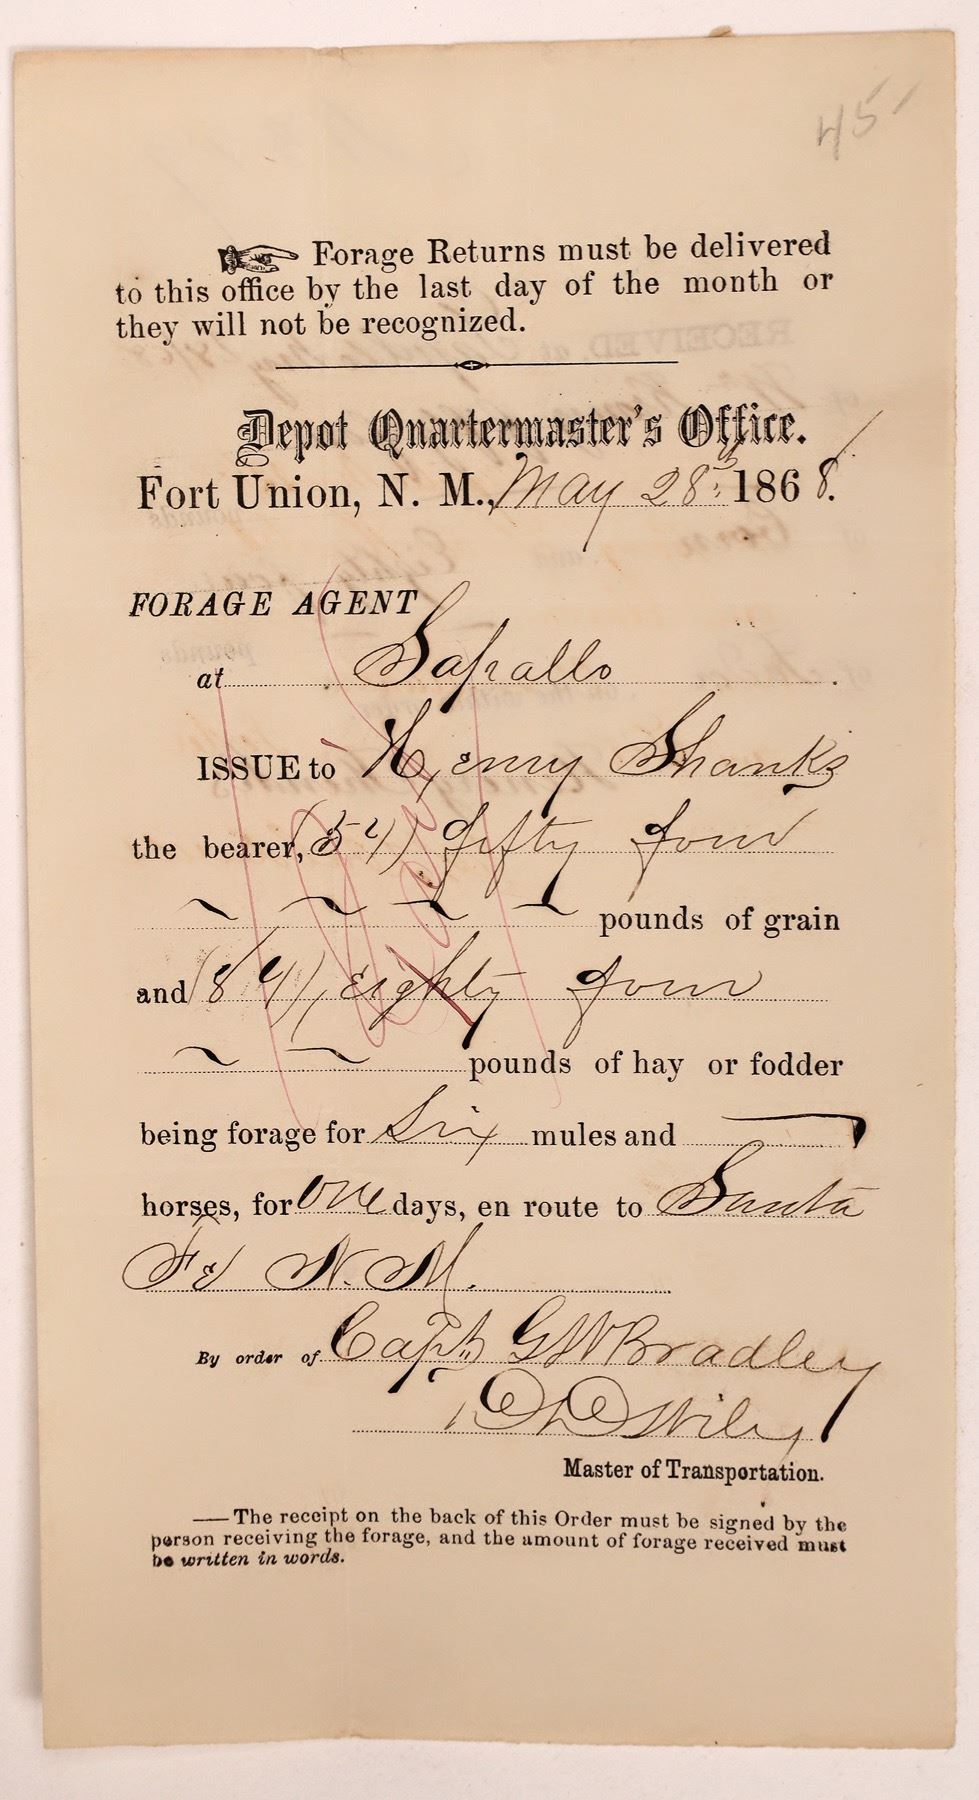 45
Forage Returns must be delivered
to this office by the last day of the month or
they will not be recognized.
Depot Quartermaster's Office.
Fort Union, N. M., May 28th 1868.
FORAGE AGENT
at Sapallo.
ISSUE to Henry Shanks
the bearer, (54) fifty four
pounds of grain
and (84), Eighty four
pounds of hay or fodder
being forage for Six mules and
horses, for One days, en route to Santa
Fé N. M.
By order of Capt. G W Bradley
Wiley
Master of Transportation.
— The receipt on the back of this Order must be signed by the
person receiving the forage, and the amount of forage received must
be written in words.